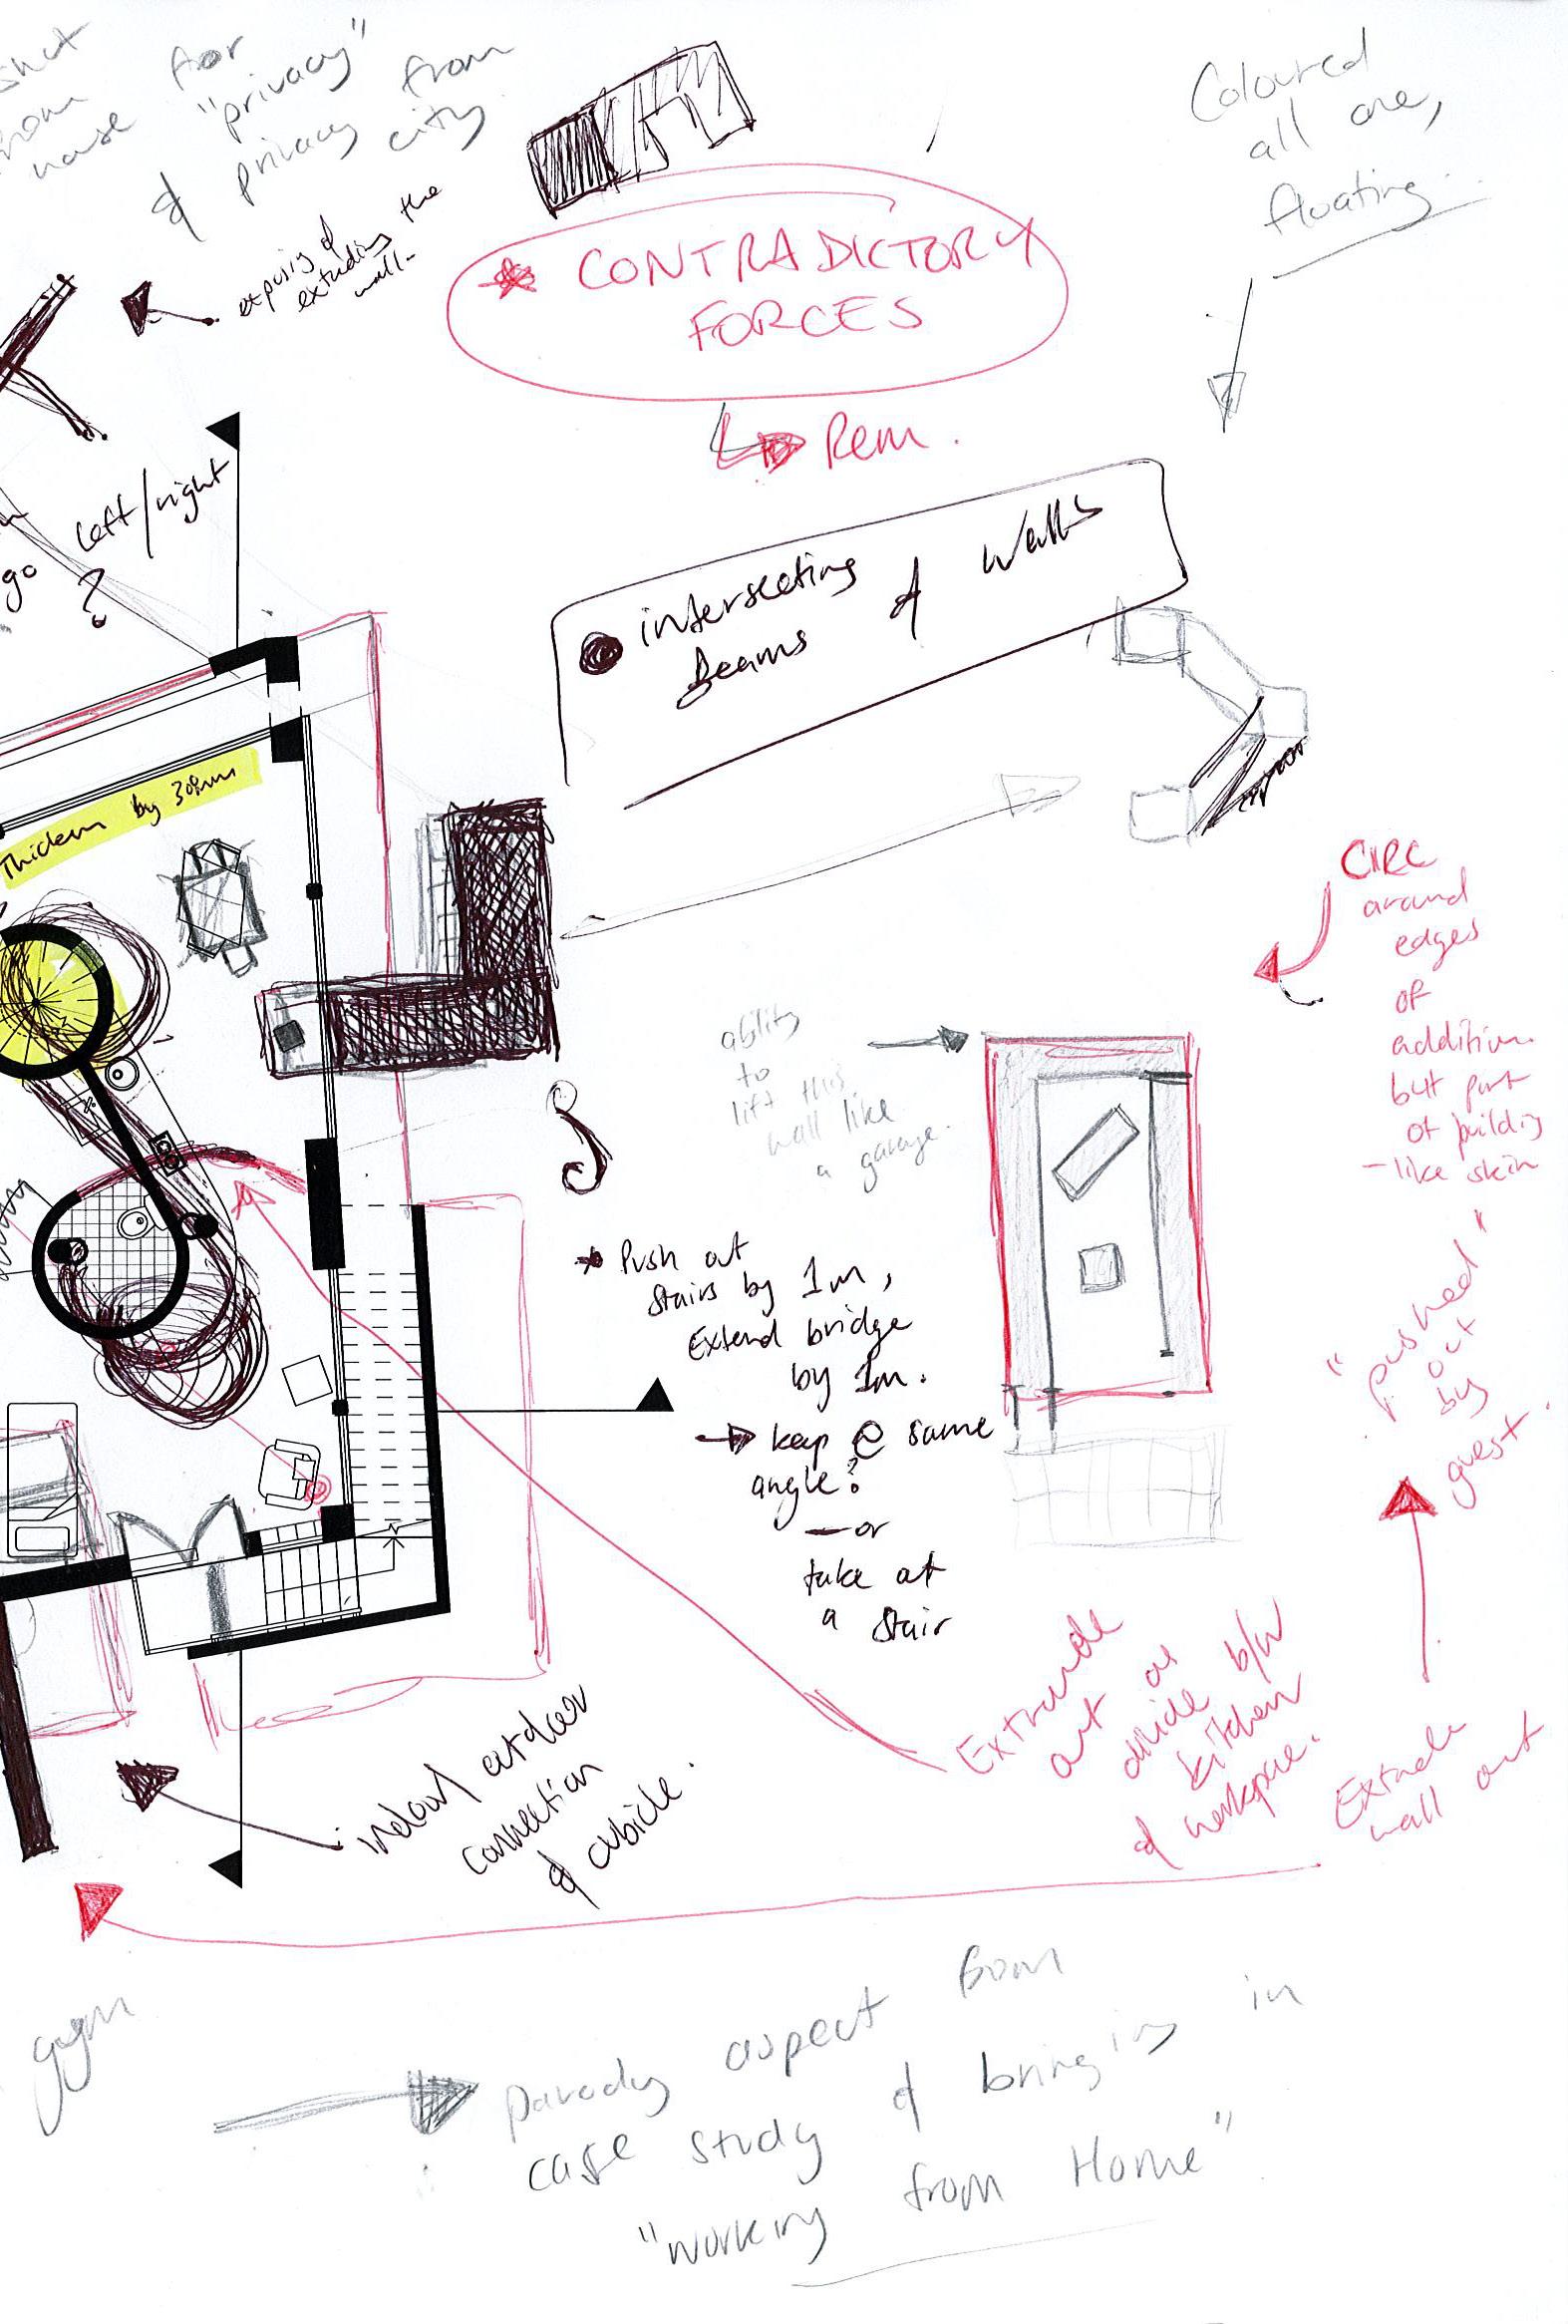 for
"privacy"
& privacy from
city.
exposing &
extruding the
wall
* CONTRADICTORY
FORCES
Rem.
Coloured
all one,
floating.
left/right
go
?
intersecting
beams & walls
Thicken by
CIRC
around
edges
of
addition
but part
of building
- like skin
ability
to
lift this
wall like
a garage.
* Push out
stairs by 1m,
Extend bridge
by 1m.
keep @ same
angle?
- or
take at
a stair
"pushed"
out
by
guest.
Extrude
out as
divide b/w
kitchen
& workspace.
Extrude
wall out
indoor/outdoor
connection
& cubicle.
gym
parody aspect from
case study & bringing in
"working from Home"